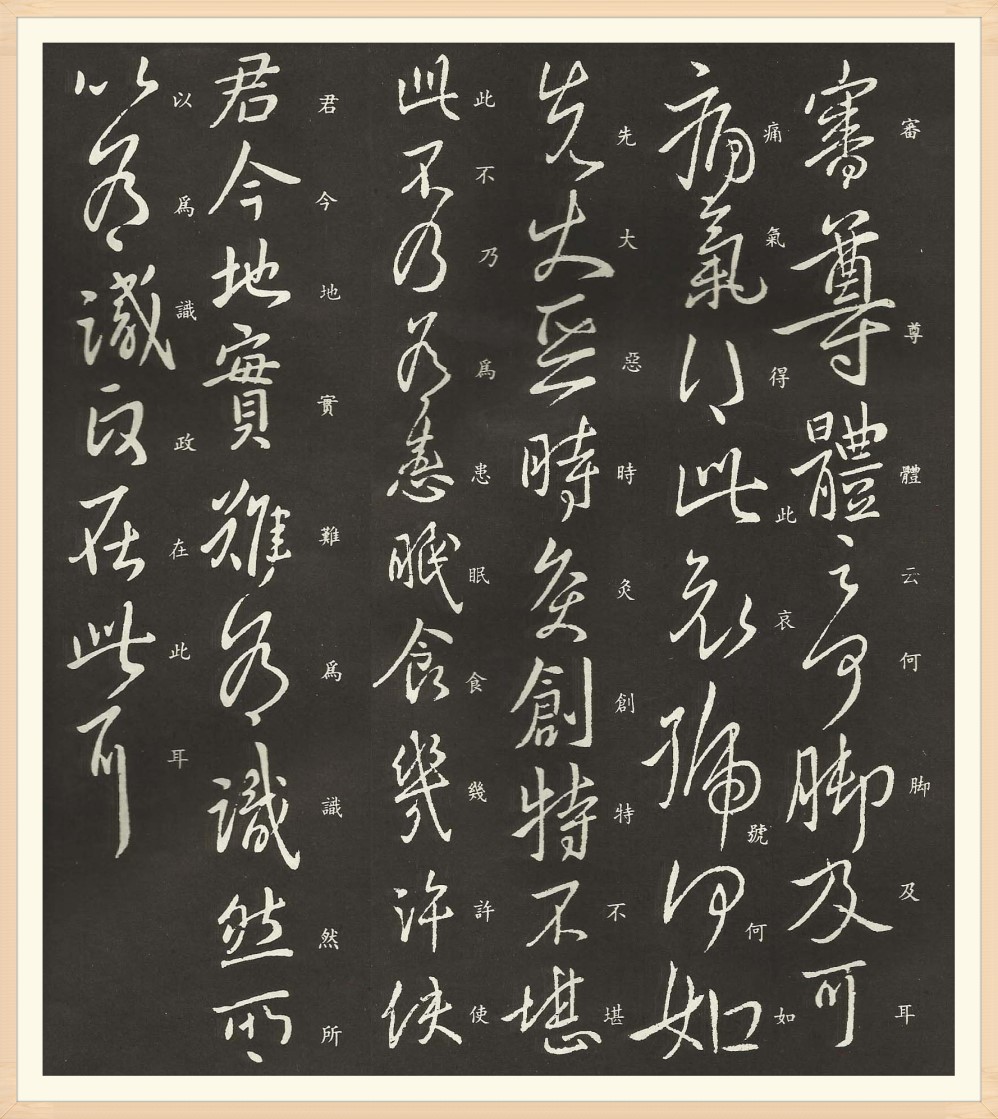 審尊體云何脚及耳
審尊體云何脚及耳
痛氣得此哀號何如
痛氣得此哀號何如
先大惡時灸創特不堪
先大惡時灸創特不堪
此不乃爲患眠食幾許使
此不乃爲患眠食幾許使
君今地實難爲識然所
君今地實難爲識然所
以爲識政在此耳
以爲識政在此耳